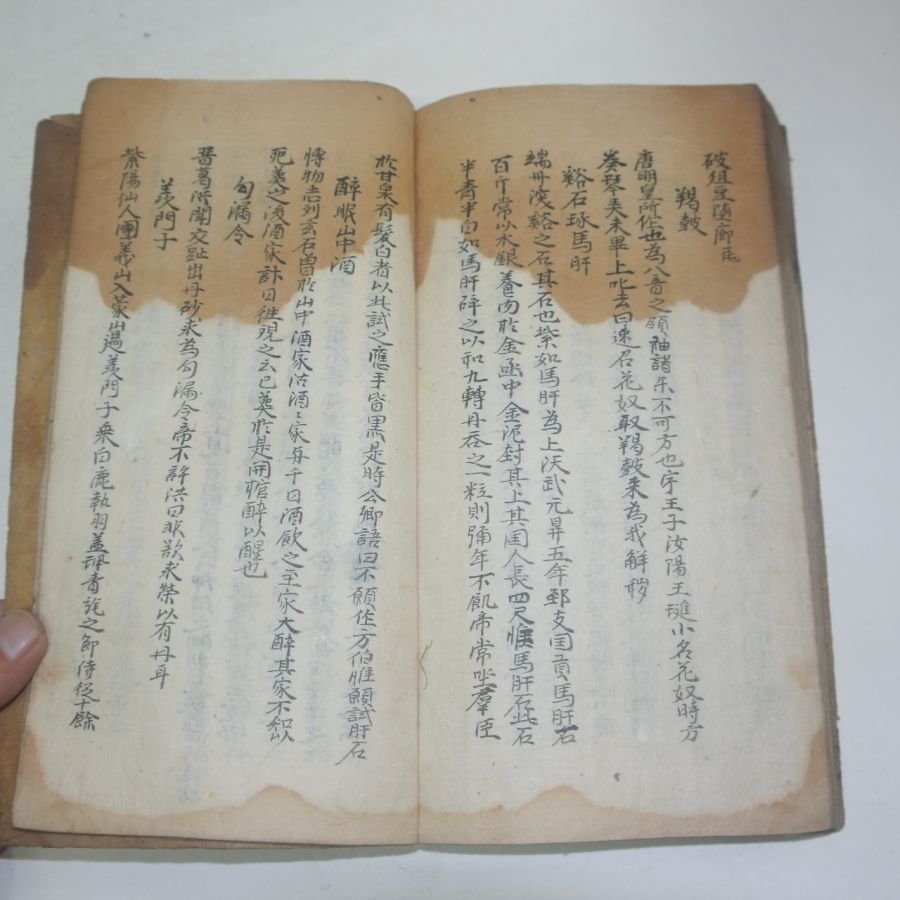 破俎豆随廊瓦
羯鼓
唐明皇所作也為八音之領袖諸乐不可方也宇王子汝陽王璡小名花奴時方
奏琴美未畢上叱去曰速召花奴取羯鼓来為我解穢
谿石琢馬肝
端州深谿之石其石也紫如馬肝為上沃武元昇五年郅支国貢馬肝石
百斤常以水銀養内於金函中金泥封其上其国人長四尺惟馬肝石此石
半青半白如馬肝碎之以和九轉丹吞之一粒則弥年不飢帝常坐羣臣
於甘泉有髮白者以此試之應手皆黑是時公卿語曰不願作方伯惟願試肝石
醉眠山中酒
博物志列玄石曽於山中酒家沽酒〻家與千日酒飲之至家大醉其家不知以
死葬之後酒家計日往現之云已葬於是開棺醉以醒也
勾漏令
晋葛洪聞交趾出丹砂求為勾漏令帝不許洪曰非欲求榮以有丹耳
羡門子
紫陽仙人周義山入蒙山遇羡門子乗白鹿執羽盖珮青旄之節侍従十餘